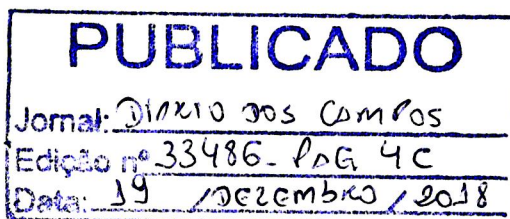 PUBLICADO
Jornal: DIÁRIO DOS CAMPOS
Edição nº 33486 - PAG 4C
Data: 19 / DEZEMBRO / 2018